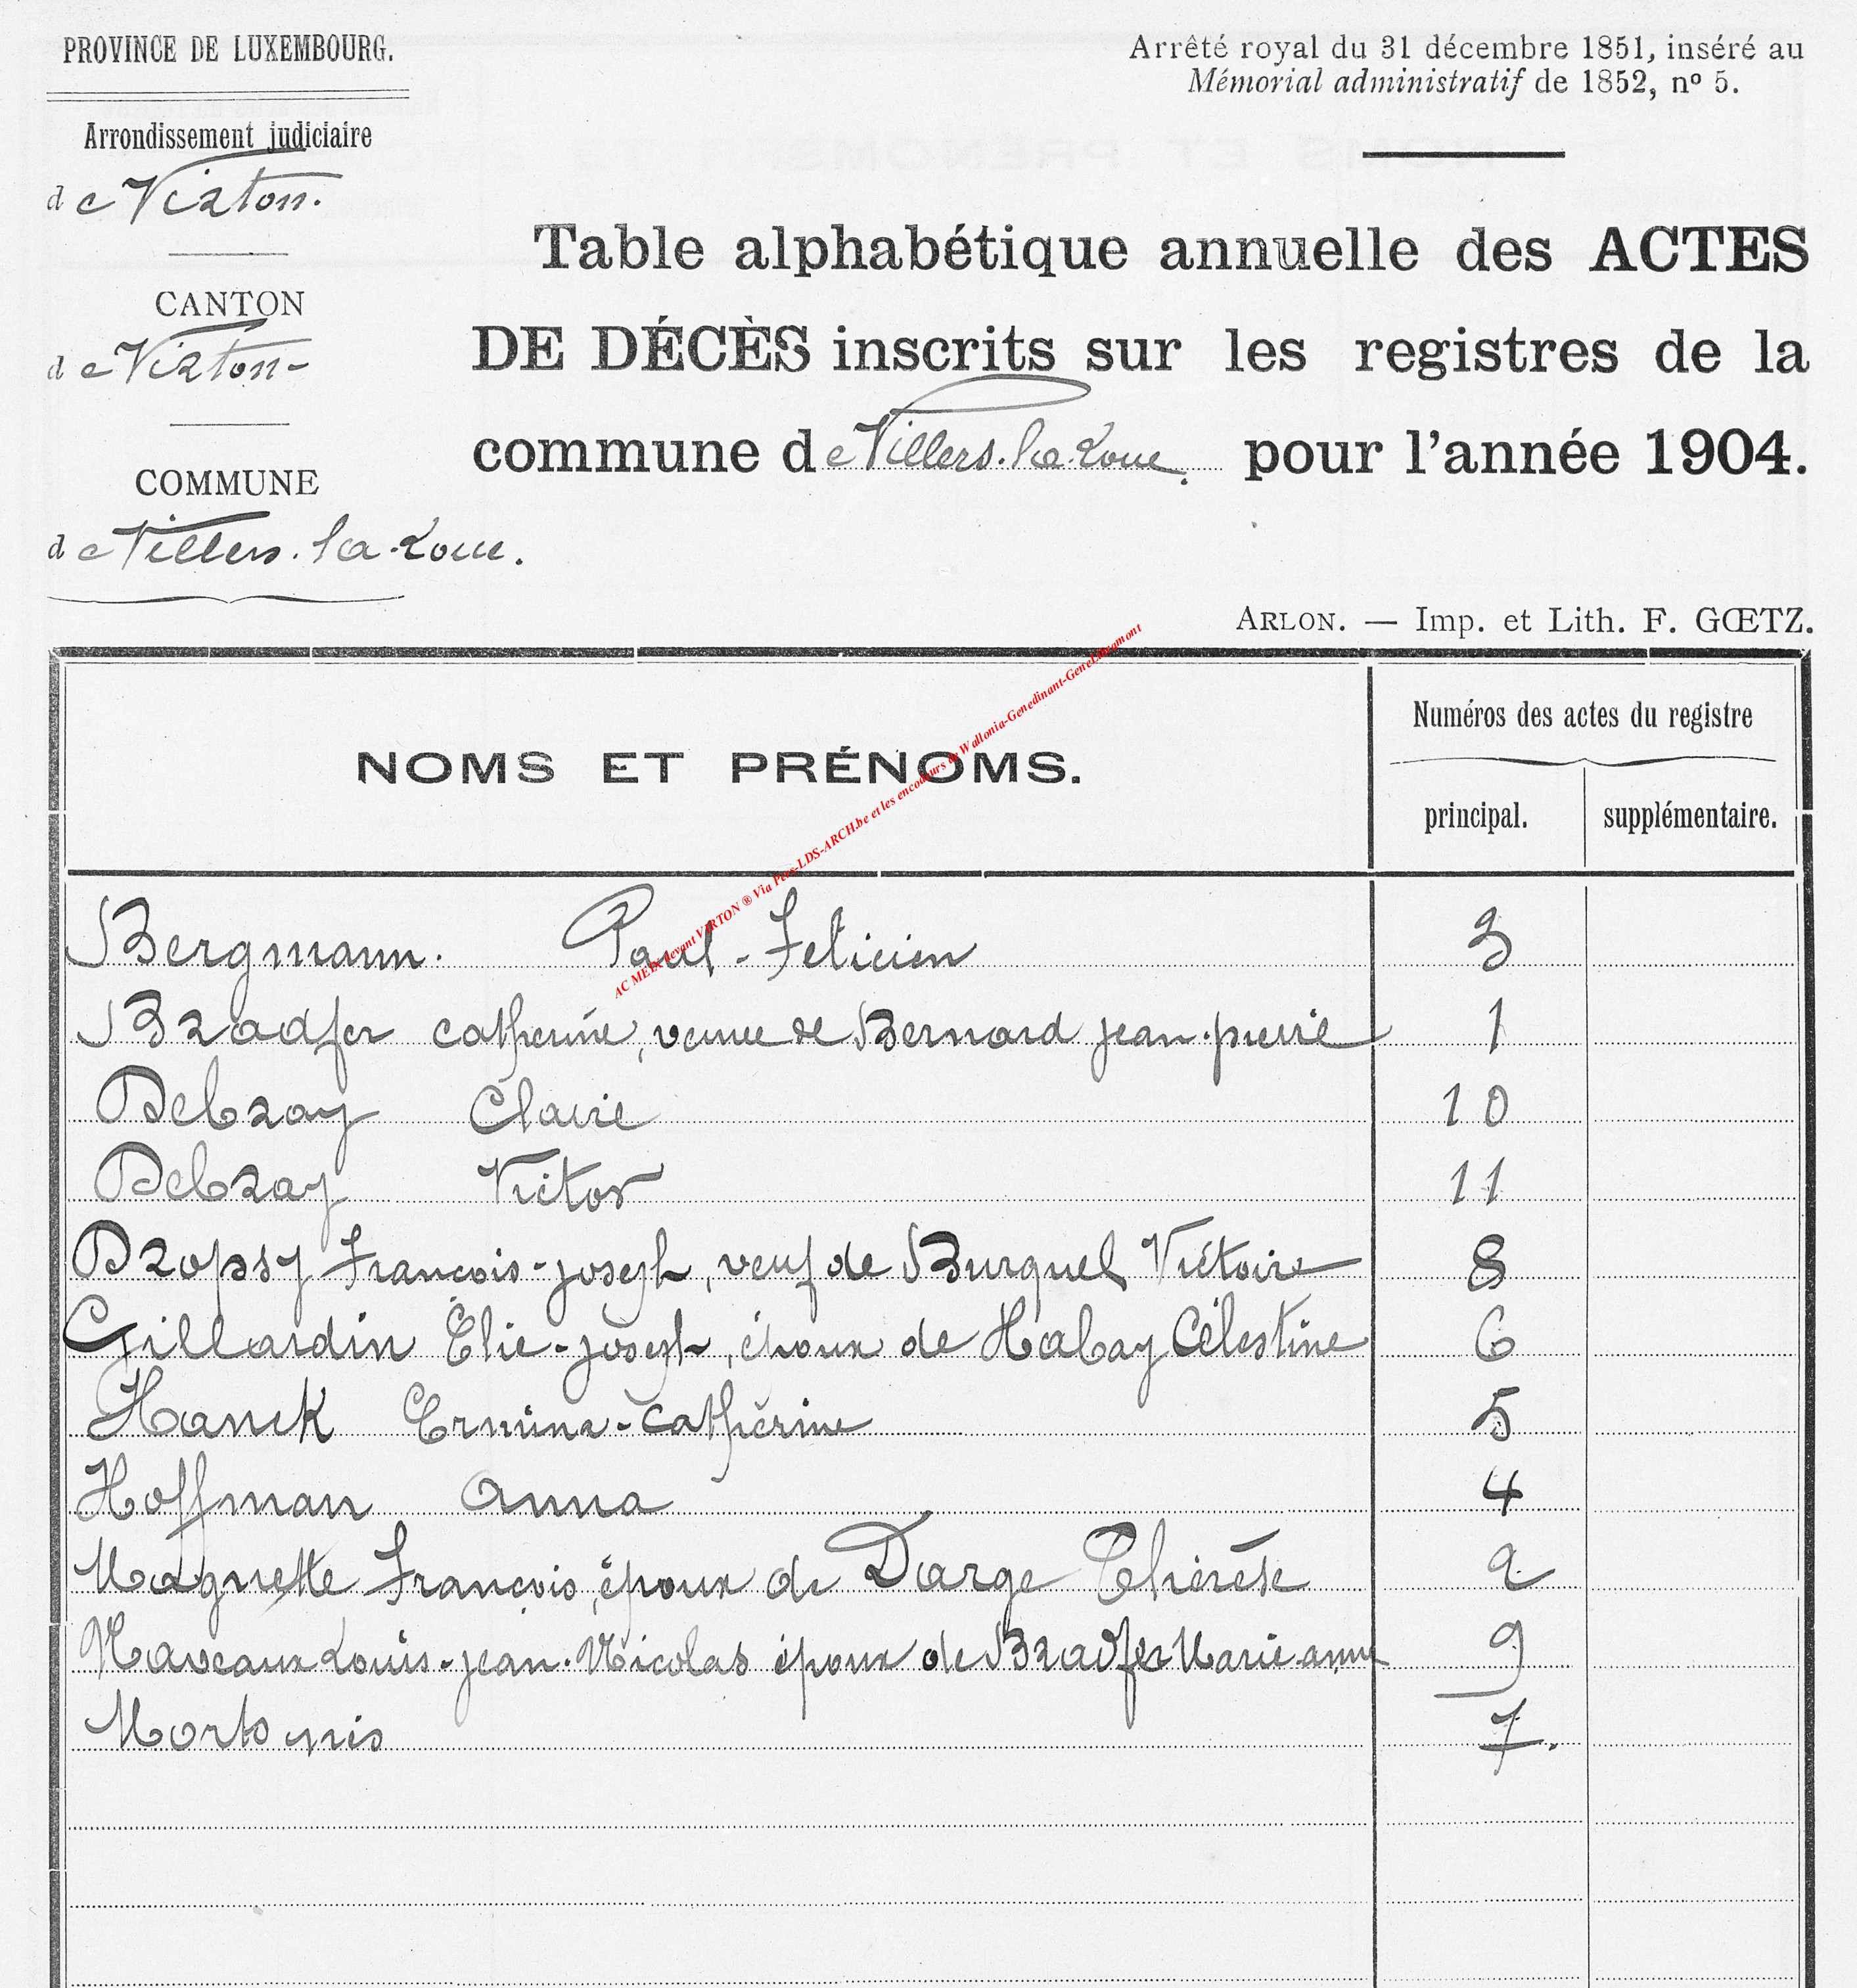 PROVINCE DE LUXEMBOURG.
Arrondissement judiciaire
de Virton.
CANTON
de Virton-
COMMUNE
de Villers-la-Loue.
Arrêté royal du 31 décembre 1851, inséré au
Mémorial administratif de 1852, nº 5.
Table alphabétique annuelle des ACTES
DE DÉCÈS inscrits sur les registres de la
commune de Villers-la-Loue. pour l'année 1904.
ARLON. — Imp. et Lith. F. GŒTZ.
NOMS ET PRÉNOMS.
Numéros des actes du registre
principal. supplémentaire.
AC MEIX devant VIRTON ® Via Fens-LDS-ARCH.be et les encodeurs de Wallonia-Genedinant-GeneLibramont
Bergmann. Paul-Felicien 3
Bradfer catherine, veuve de Bernard jean-pierre 1
Debray Claire 10
Debray Victor 11
Dropsy François-joseph, veuf de Burquel Victoire 8
Gillardin Elie-joseph, époux de Habay Célestine 6
Hanck Ermina-cathérine 5
Hoffman anna 4
Magnette François, époux de Darge Thérèse 2
Maveaux Louis-jean-Nicolas époux de Bradfer Marie anne 9
Morts nés 7.